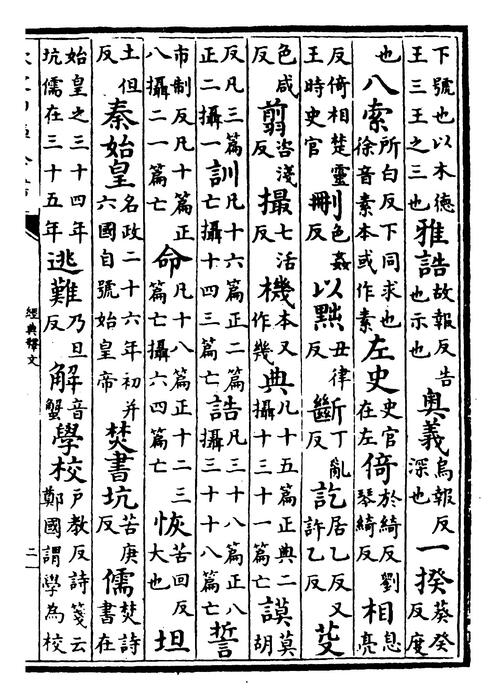 下號也以木德王三王之三也雅誥故報反告也示也奧義烏報反深也一揆葵癸反度
也八索所白反下同求也徐音素本或作素左史史官在左倚於綺反劉琴綺反相息亮
反倚相楚靈王時史官刪色姦反以黜丑律反斷丁亂反訖居乙反又許乙反芟
色咸反翦咨淺反撮七活反機本又作幾典凡十五篇正典二攝十三十一篇亡謨莫胡
反凡三篇正二攝一訓凡十六篇正二篇亡攝十四三篇亡誥凡三十八篇正八攝三十十八篇亡誓
市制反凡十篇正八攝二一篇亡命凡十八篇正十二三篇亡攝六四篇亡恢苦回反大也坦
土但反秦始皇名政二十六年初并六國自號始皇帝焚書坑苦庚反儒焚詩書在
始皇之三十四年坑儒在三十五年逃難乃旦反解音蟹學校戶教反詩箋云鄭國謂學為校
經典釋文
二